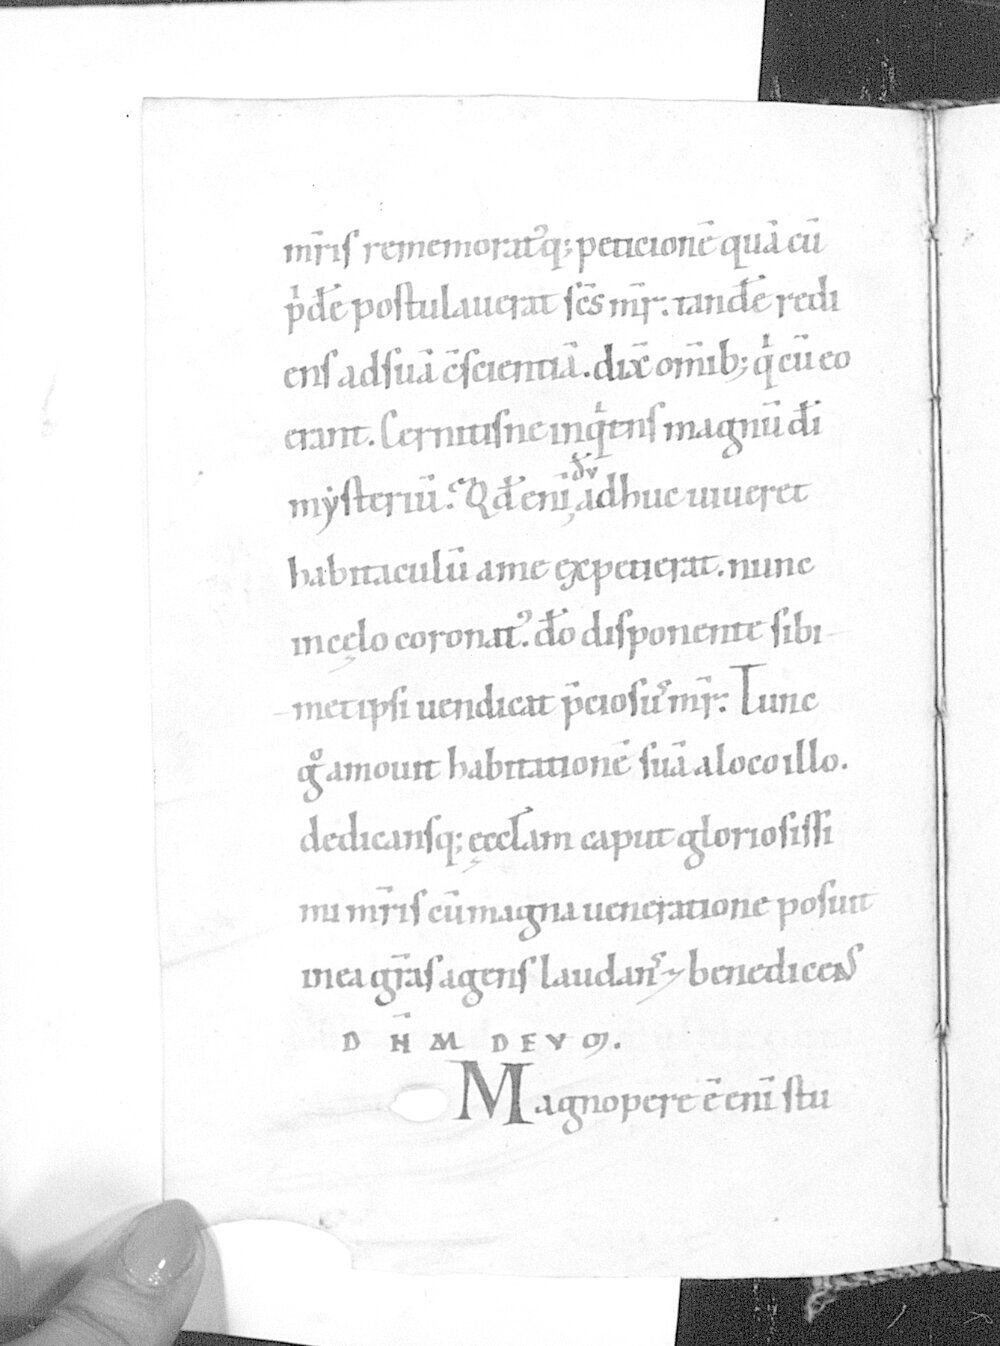 mr̄is rememorat᾿q; peticionē quā cū
p̍dc̄e postulauerat sc̄s mr̄. tandē redi
ens ad suā c̄scientiā. dix̄ om̄ib; q̍ cū eo
erant. Cernitis ne inq̍ens magnū dī
mẏsteriū? Qđ enī, dū adhuc uiueret
habitaculū a me expetierat. nunc
in cęlo coronat᾿. dō disponente sibi
met ipsi uendicat p̄ciosus mr̄. Tunc
gͦ amouit habitationē suā a loco illo.
dedicansq; ęccłam caput gloriosissi
mi mr̄is cū magna ueneratione posuit
in ea gr̄as agens laudans & benedicens
D N̄ M DEUM.
Magnopere ē enī stu